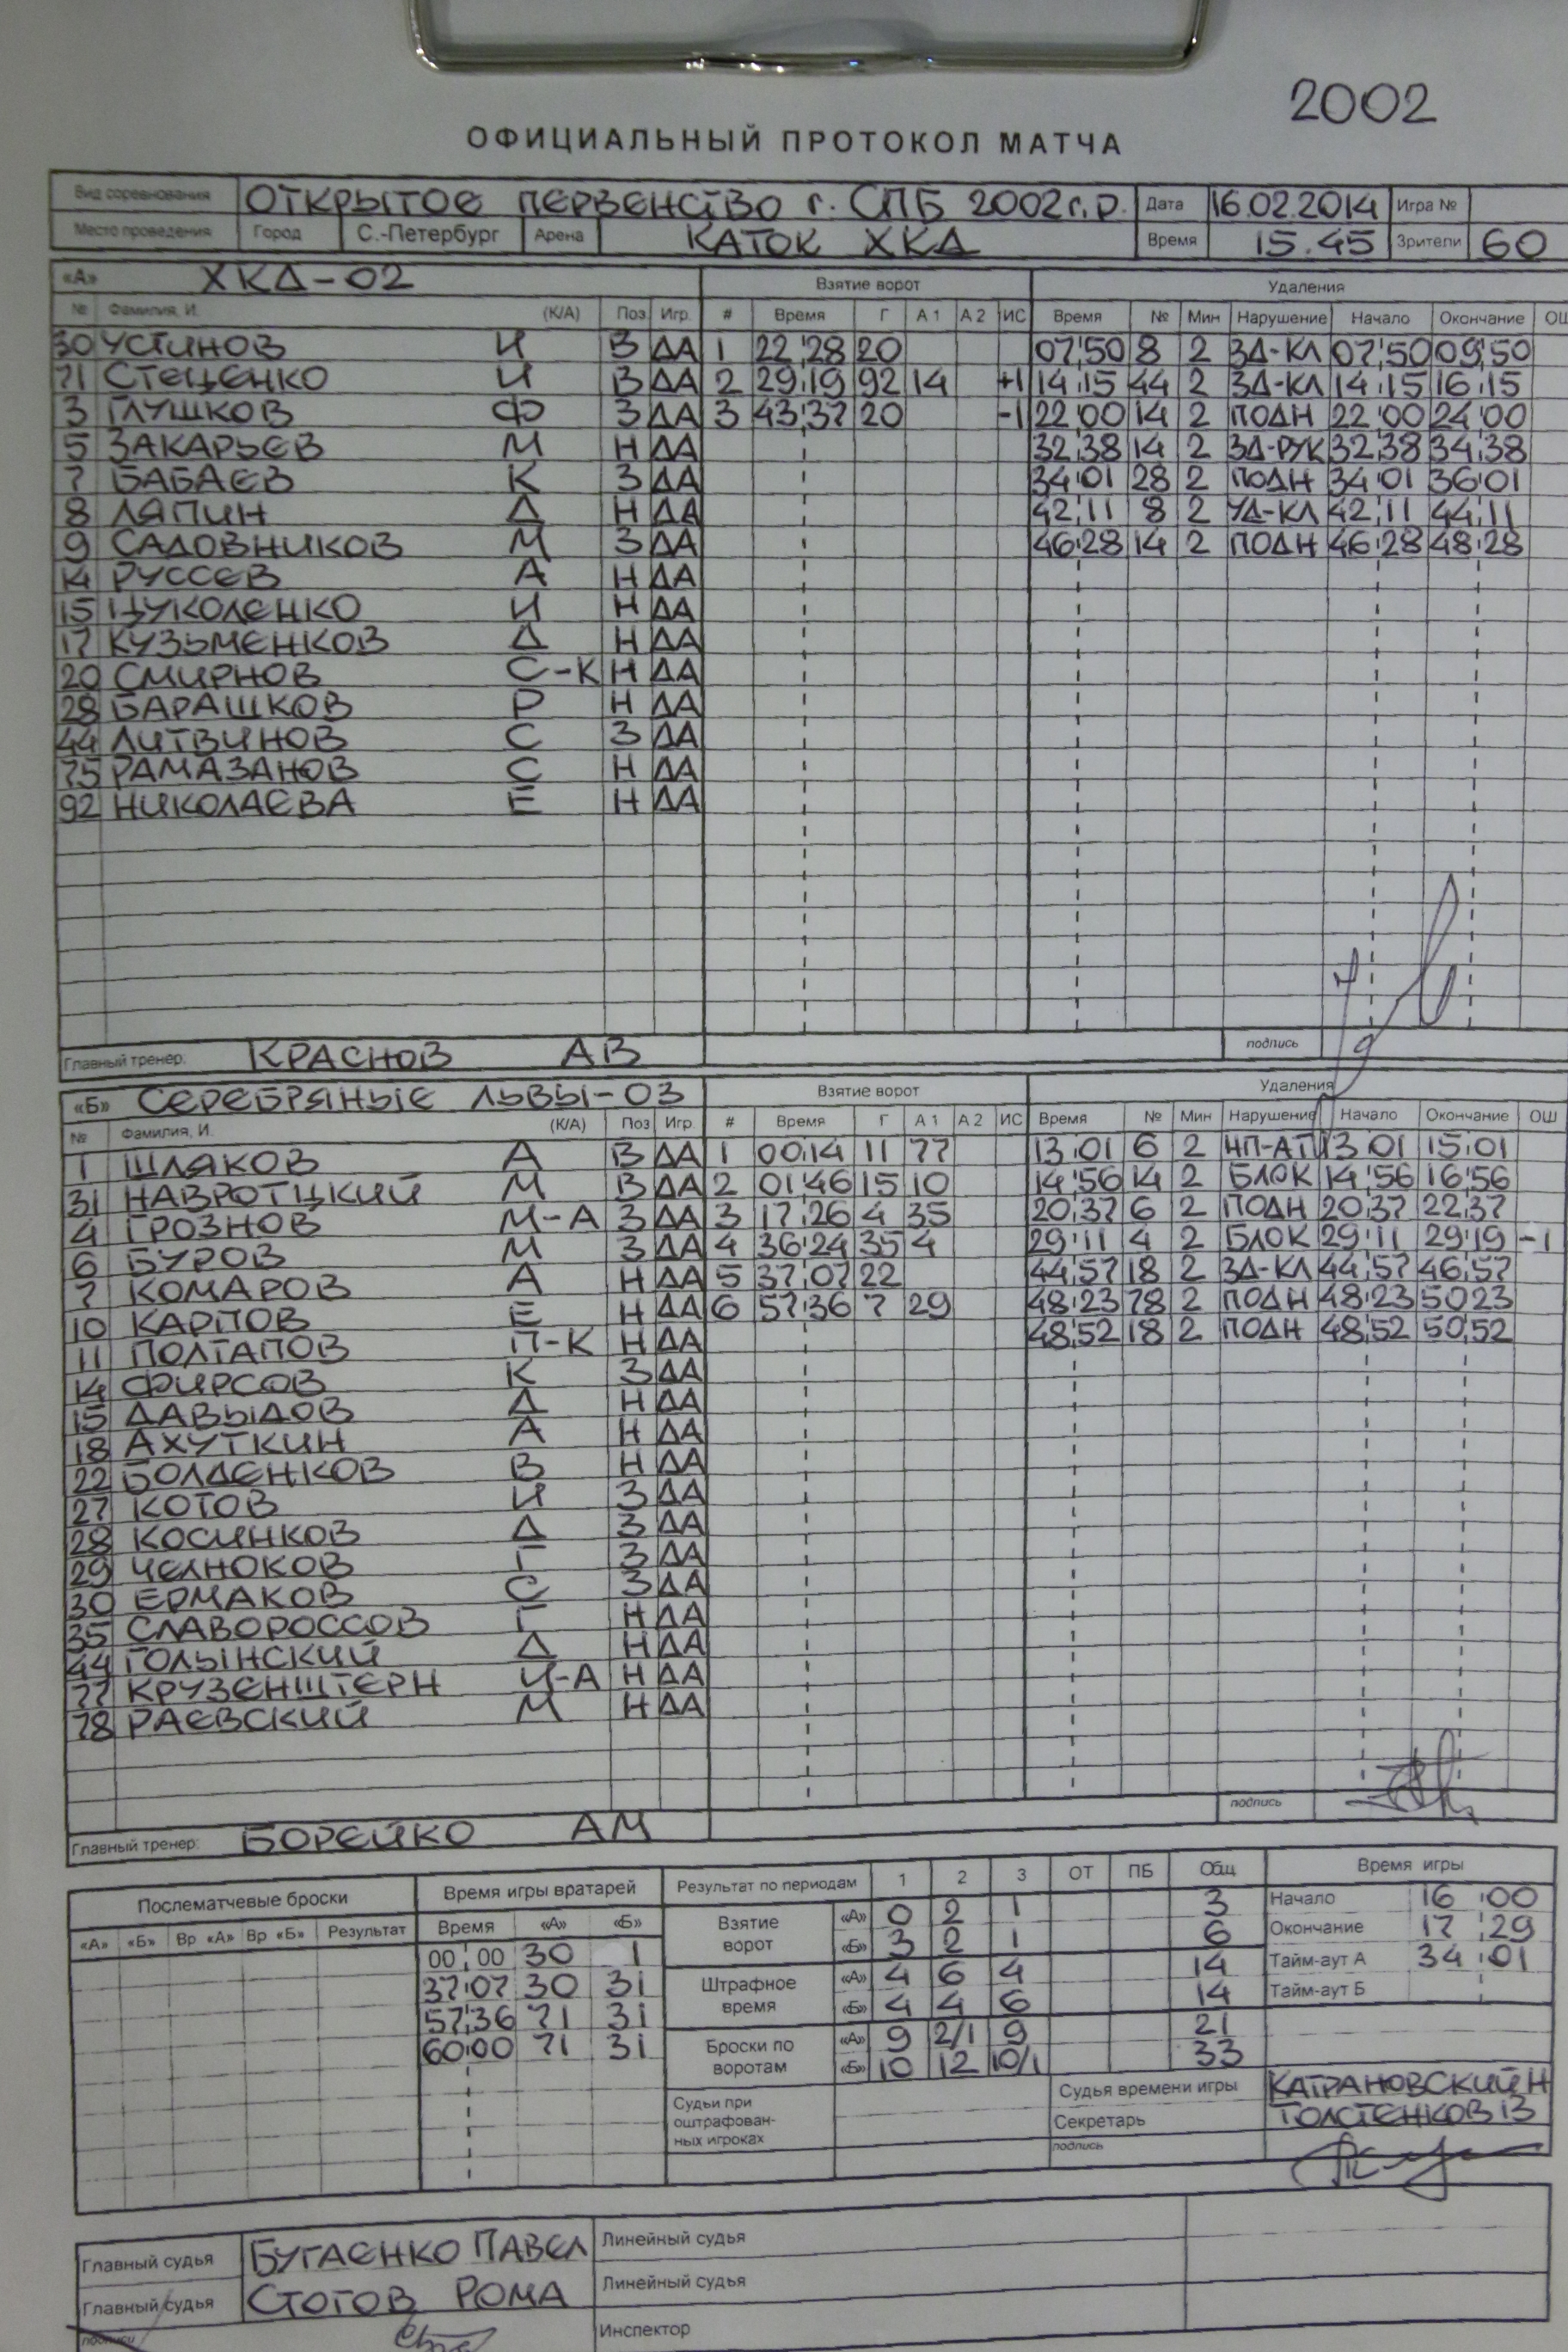 2002
ОФИЦИАЛЬНЫЙ ПРОТОКОЛ МАТЧА
Вид соревнования ОТКРЫТОЕ ПЕРВЕНСТВО г. СПБ 2002г.р. Дата 16.02.2014 Игра №
Место проведения Город С.-Петербург Арена КАТОК ХКД Время 15.45 Зрители 60
«А» ХКД-02 Взятие ворот Удаления
№ Фамилия, И. (К/А) Поз Игр. # Время Г А 1 А 2 ИС Время № Мин Нарушение Начало Окончание ОШ
30 УСТИНОВ И В ДА 1 22 28 20 07 50 8 2 ЗД-КЛ 07 50 09 50
71 СТЕЦЕНКО И В ДА 2 29 19 92 14 +1 14 15 44 2 ЗД-КЛ 14 15 16 15
3 ГЛУШКОВ Ф З ДА 3 43 37 20 -1 22 00 14 2 ПОДН 22 00 24 00
5 ЗАКАРЬЕВ М Н ДА 32 38 14 2 ЗД-РУК 32 38 34 38
7 БАБАЕВ К З ДА 34 01 28 2 ПОДН 34 01 36 01
8 ЛЯПИН Д Н ДА 42 11 8 2 УД-КЛ 42 11 44 11
9 САДОВНИКОВ М З ДА 46 28 14 2 ПОДН 46 28 48 28
14 РУССЕВ А Н ДА
15 ЦУКОЛЕНКО И Н ДА
17 КУЗЬМЕНКОВ Д Н ДА
20 СМИРНОВ С-К Н ДА
28 БАРАШКОВ Р Н ДА
44 ЛИТВИНОВ С З ДА
75 РАМАЗАНОВ С Н ДА
92 НИКОЛАЕВА Е Н ДА
Главный тренер: КРАСНОВ АВ подпись
«Б» СЕРЕБРЯНЫЕ ЛЬВЫ-03 Взятие ворот Удаления
№ Фамилия, И. (К/А) Поз Игр. # Время Г А 1 А 2 ИС Время № Мин Нарушение Начало Окончание ОШ
1 ШЛЯКОВ А В ДА 1 00 14 11 77 13 01 6 2 НП-АТ 13 01 15 01
31 НАВРОТЦКИЙ М В ДА 2 01 46 15 10 14 56 14 2 БЛОК 14 56 16 56
4 ГРОЗНОВ М-А З ДА 3 17 26 4 35 20 37 6 2 ПОДН 20 37 22 37
6 БУРОВ М З ДА 4 36 24 35 4 29 11 4 2 БЛОК 29 11 29 19 -1
7 КОМАРОВ А Н ДА 5 37 07 22 44 57 18 2 ЗД-КЛ 44 57 46 57
10 КАРПОВ Е Н ДА 6 57 36 7 29 48 23 78 2 ПОДН 48 23 50 23
11 ПОЛТАПОВ П-К Н ДА 48 52 18 2 ПОДН 48 52 50 52
14 ФИРСОВ К З ДА
15 ДАВЫДОВ Д Н ДА
18 АХУТКИН А Н ДА
22 БОЛДЕНКОВ В Н ДА
27 КОТОВ И З ДА
28 КОСИНКОВ Д З ДА
29 ЧЕЛНОКОВ Г З ДА
30 ЕРМАКОВ С З ДА
35 СЛАВОРОССОВ Г Н ДА
44 ГОЛЫНСКИЙ Д Н ДА
77 КРУЗЕНШТЕРН И-А Н ДА
78 РАЕВСКИЙ М Н ДА
Главный тренер: БОРЕЙКО АМ подпись
Послематчевые броски Время игры вратарей Результат по периодам 1 2 3 ОТ ПБ Общ Время игры
«А» «Б» Вр «А» Вр «Б» Результат Время «А» «Б»
Взятие ворот «А» 0 2 1 3 Начало 16 00
«Б» 3 2 1 6 Окончание 17 29
00 00 30 1 Штрафное время «А» 4 6 4 14 Тайм-аут А 34 01
37 07 30 31 «Б» 4 4 6 14 Тайм-аут Б
57 36 71 31 Броски по воротам «А» 9 2/1 9 21
60 00 71 31 «Б» 10 12 10/1 33
Судьи при оштрафован- ных игроках Судья времени игры КАТРАНОВСКИЙ Н
Секретарь ТОЛСТЕНКОВ В
подпись
Главный судья БУГАЕНКО ПАВЕЛ Линейный судья
Главный судья СТОТОВ РОМА Линейный судья
подписи Инспектор